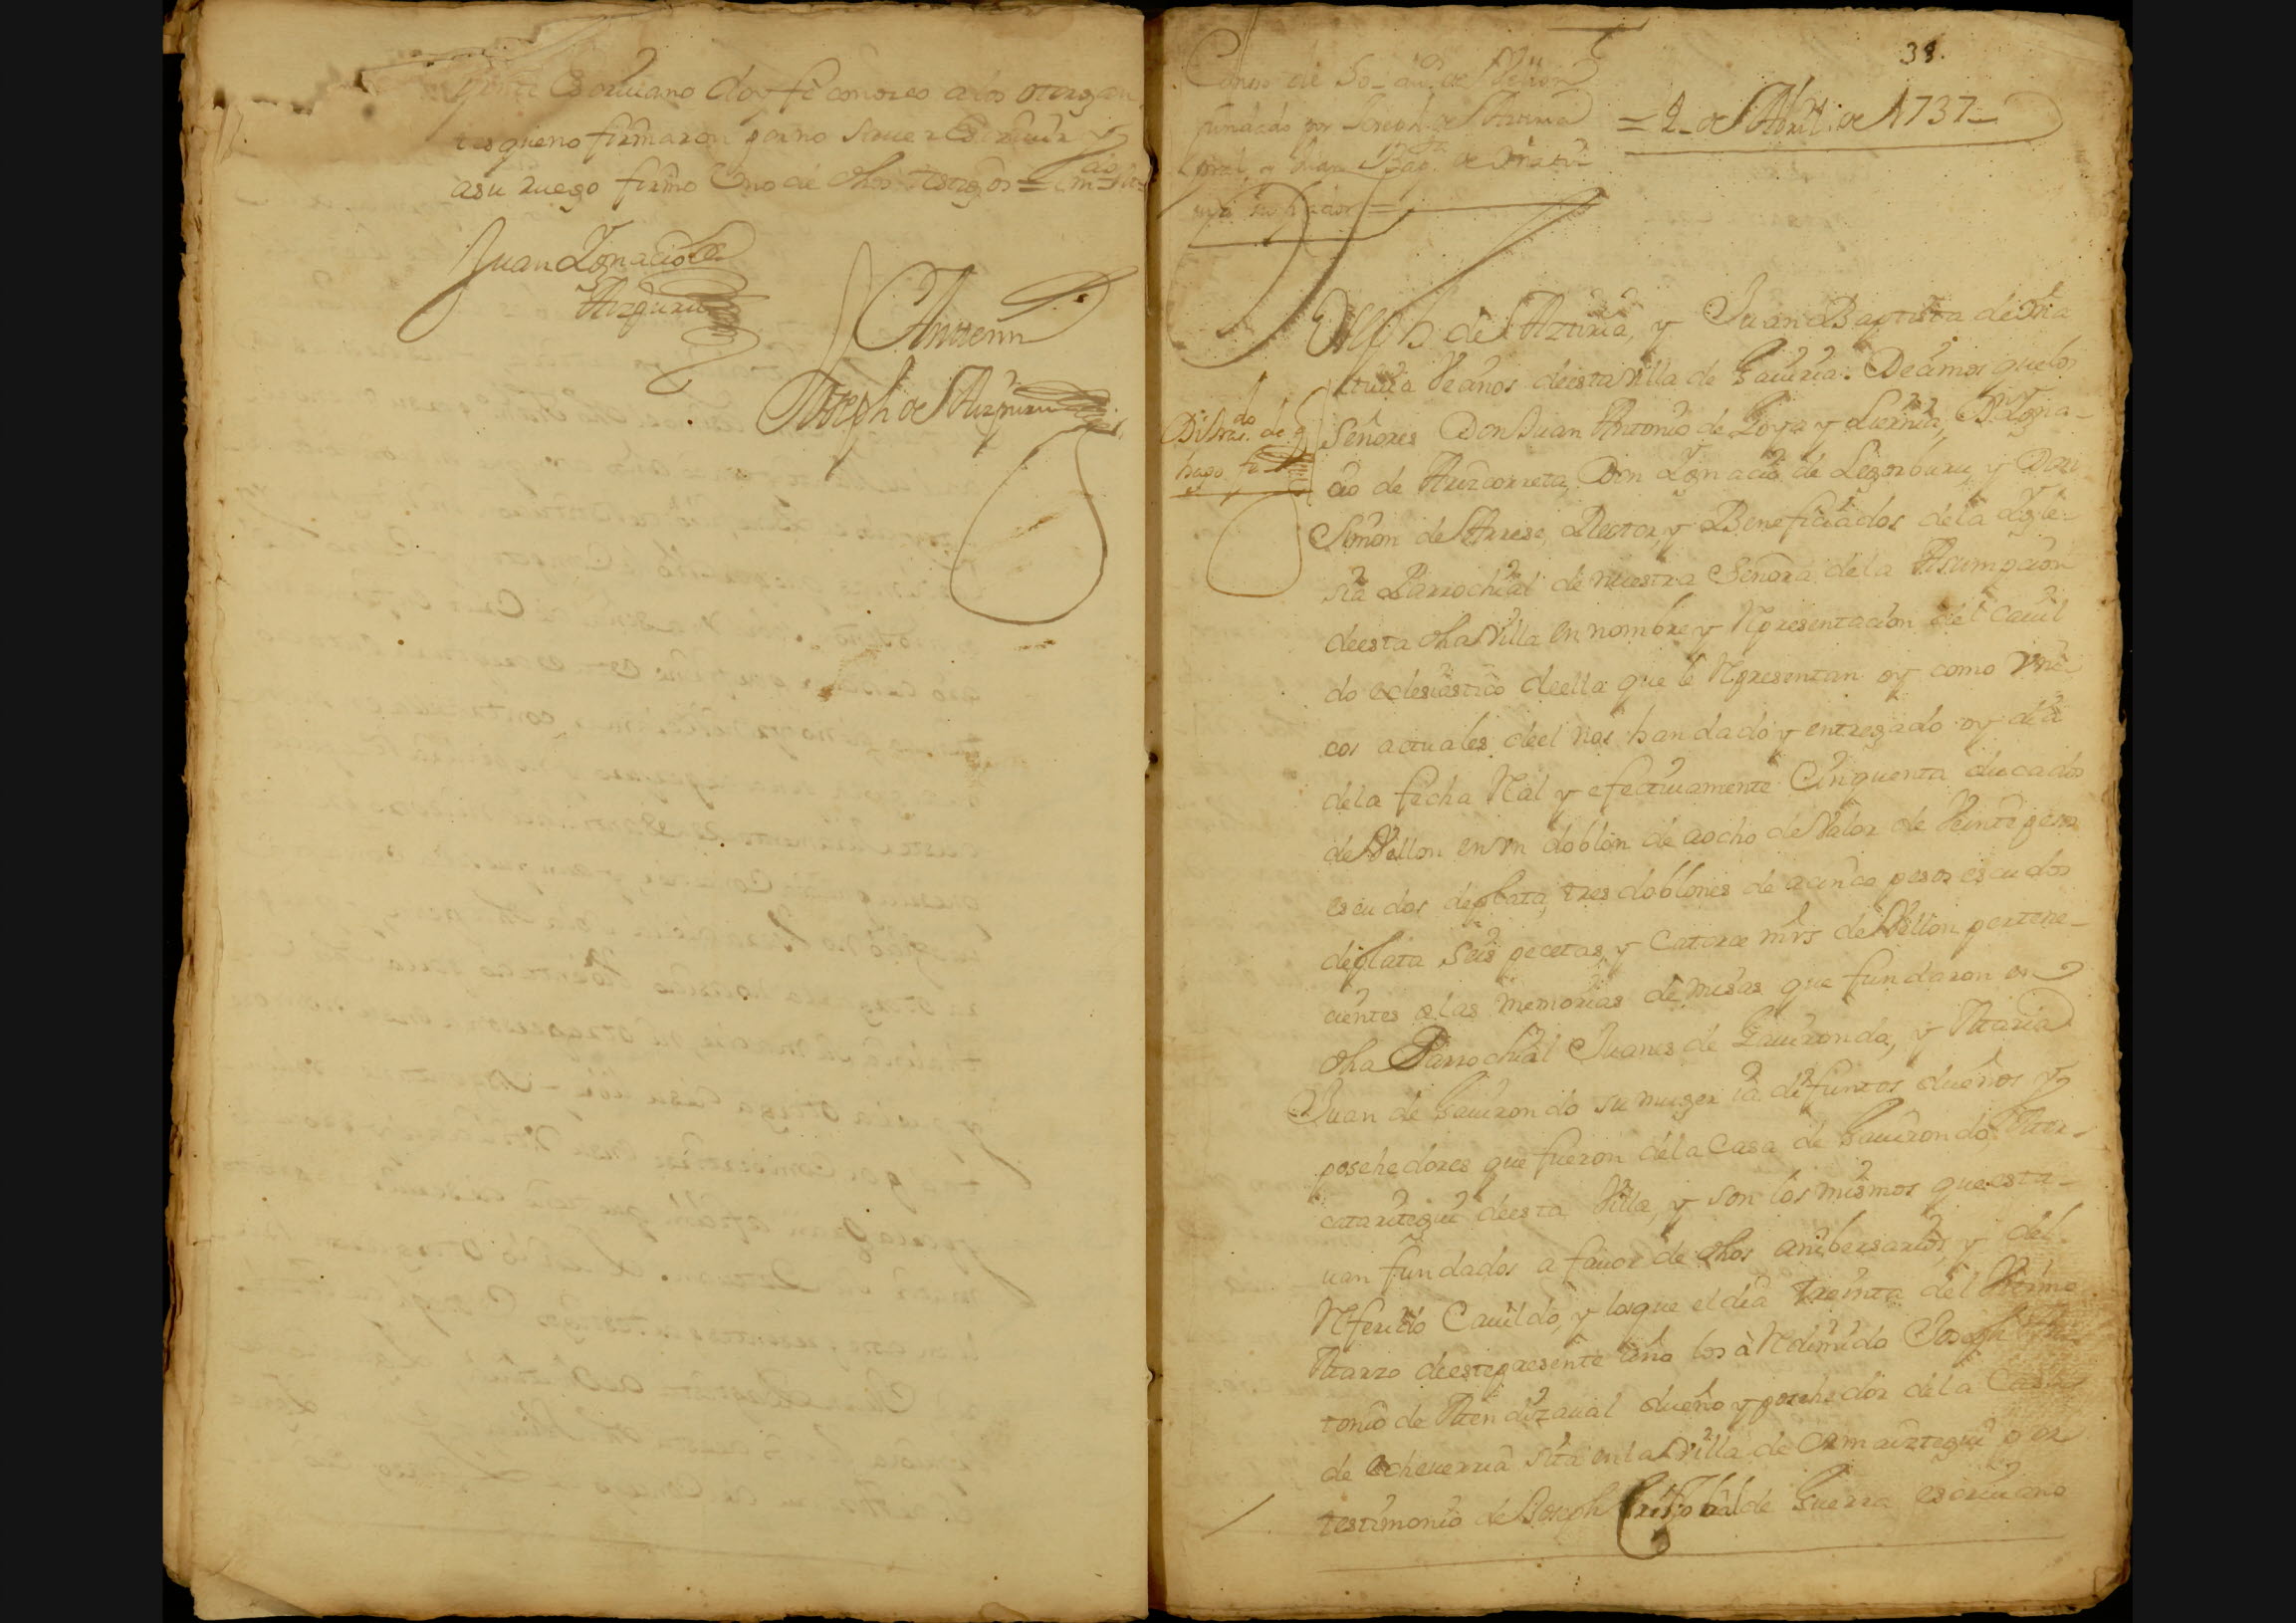 Escriuano doy fe conozco a los otorgan
tes que no firmaron por no sauer Escriuir y
a su ruego firmo Vno de dhos testigos =
Juan Ygnacio de
Aizpuru
Antemi
Joseph de Aizpuru
38.
Censo de 50 du.s de Vellon
fundado por Joseph de Azturia
pral, y Juan Bap.ta de Oria
su fiador =
= 2_ de Abril de 1737_
Joseph de Azturia, y Juan Baptista de Oria
Vecinos de esta Villa de Gauiria: Decimos que los
Señores Don Juan Antonio de Loya y Liernia, D.n Ygna-
cio de Arizcorreta, Don Ygnacio de Lizorburu, y Don
Simon de Arrese, Rector, y Beneficiados de la Ygle-
sia Parrochial de nuestra Señora de la Asumpcion
de esta dha Villa en nombre y Representacion del Cauil
do eclesiastico de ella que le Representan oy como Vni-
cos actuales de el nos han dado y entregado oy dia
de la fecha Real y efectiuamente Cinquenta ducados
de Vellon en vn doblon de a ocho de Valor de Veinte pesos
escudos de plata, tres doblones de a cinco pesos escudos
de plata seis pecetas, y Catorce mrs de Vellon pertene-
cientes a las memorias de misas que fundaron en
dha Parrochial Juanes de Gauirondo, y Maria
Juan de Gauirondo su muger ia difuntos dueños y
posehedores que fueron de la Casa de Gauirondo,
de esta Villa, y son los mismos que esta-
uan fundados a fauor de dhos anibersarios, y del
Referido Cauildo, y los que el dia treinta del Vltimo
Marzo de este presente año los a Redimido Joseph An-
tonio de Mendizaual dueño y posehedor de la Casa
de echeuerria sita en la Villa de Ormaiztegui por
testimonio de Joseph Cristobal de Guerra escriuano